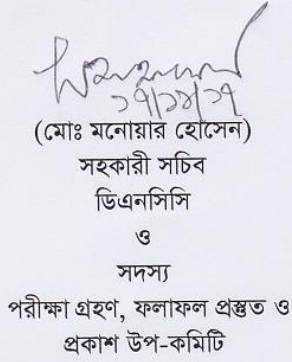 ১৭/১১/১৭
(মোঃ মনোয়ার হোসেন)
সহকারী সচিব
ডিএনসিসি
ও
সদস্য
পরীক্ষা গ্রহণ, ফলাফল প্রস্তুত ও
প্রকাশ উপ-কমিটি